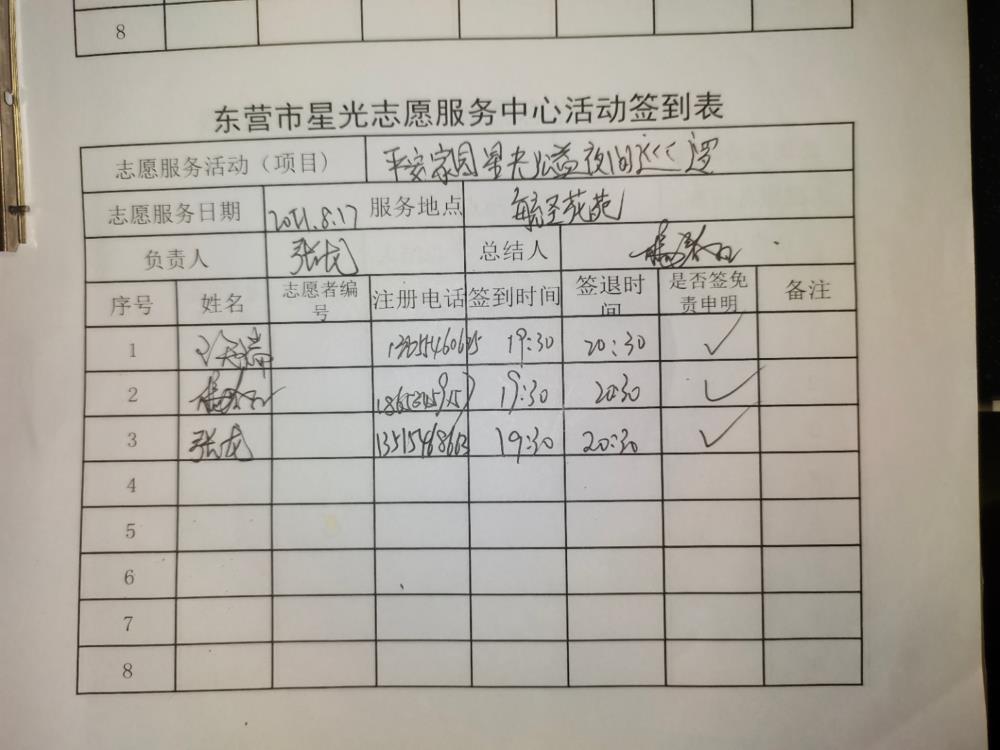 8
东营市星光志愿服务中心活动签到表
志愿服务活动（项目） 平安家园星光公益夜间巡逻
志愿服务日期 2021.8.17 服务地点 花苑
负责人 张龙 总结人
序号 姓名 志愿者编号 注册电话 签到时间 签退时间 是否签免责申明 备注
1 19:30 20:30 ✓
2 19:30 20:30 ✓
3 张龙 13515468663 19:30 20:30 ✓
4
5
6
7
8